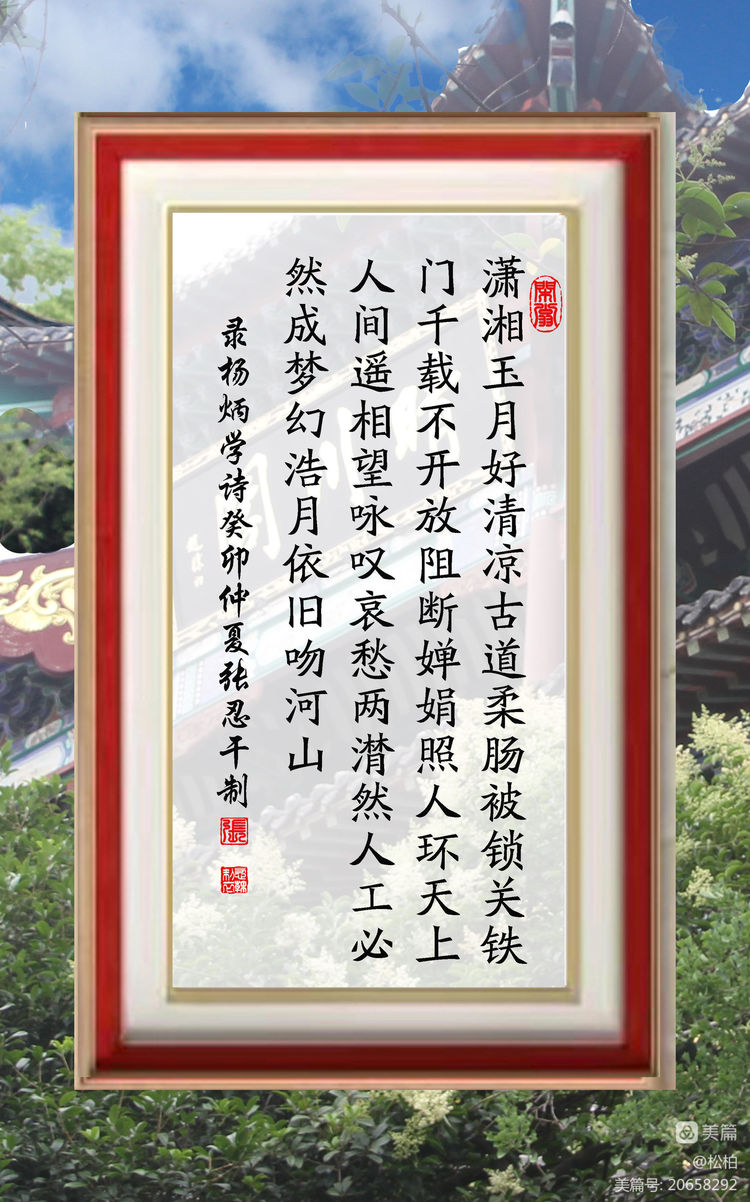 潇湘玉月好清凉古道柔肠被锁关铁
门千载不开放阻断婵娟照人环天上
人间遥相望咏叹哀愁两潸然人工必
然成梦幻浩月依旧吻河山
录杨炳学诗癸卯仲夏张忍干制
美篇
@松柏
美篇号: 20658292